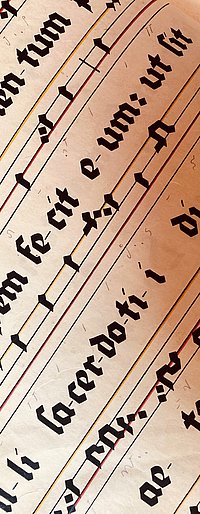 en- tum
em fe- cit e- um: ut sit
il- li sa- cer- do- ti- i di
ae- t